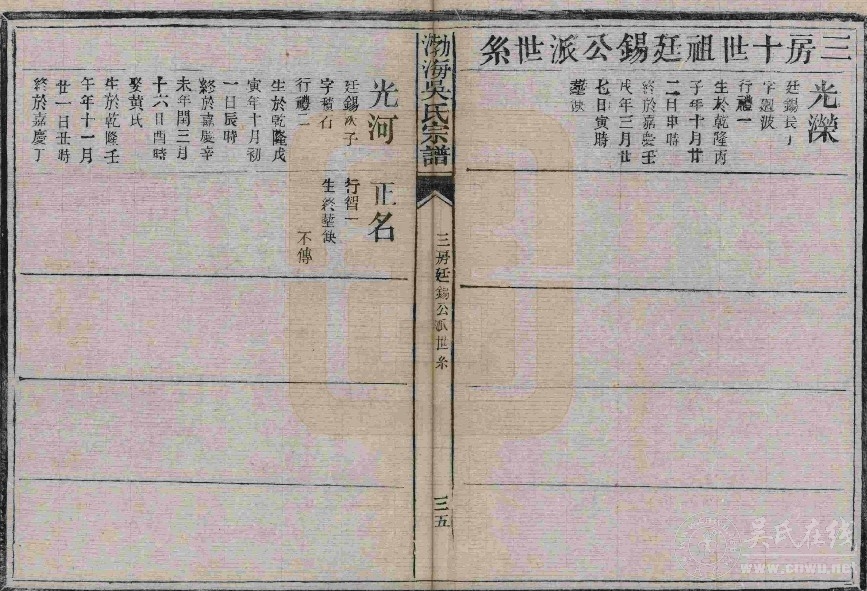 三房十世祖廷錫公派世系
光濼
廷錫長子
字觀波
行禮一
生於乾隆丙
子年十月廿
二日申時
終於嘉慶壬
戌年三月廿
七日寅時
墓缺
渤海吳氏宗譜
三房廷錫公派世系
三五
光河
廷錫次子
字積石
行禮二
生於乾隆戊
寅年十月初
一日辰時
終於嘉慶辛
未年閏三月
十六日酉時
娶黃氏
生於乾隆壬
午年十一月
廿一日丑時
終於嘉慶丁
正名
行智一
生終塟缺
不傳
吳氏在线
www.cnwu.net